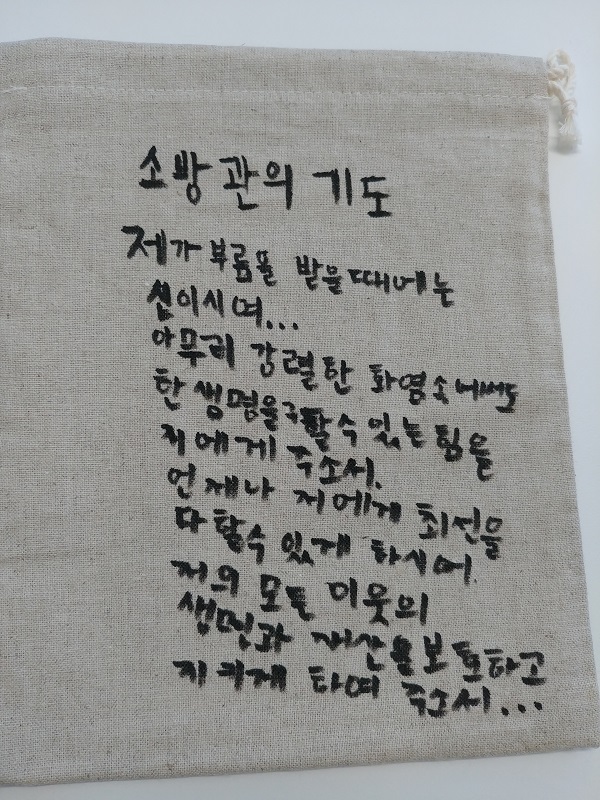 소방관의 기도
제가 부름을 받을때에는
신이시여...
아무리 강렬한 화염속에서도
한 생명을구할수있는 힘을
저에게 주소서.
언제나 저에게 최선을
다할수 있게 하시어
저의 모든 이웃의
생명과 재산을보호하고
지키게 하여 주소서...